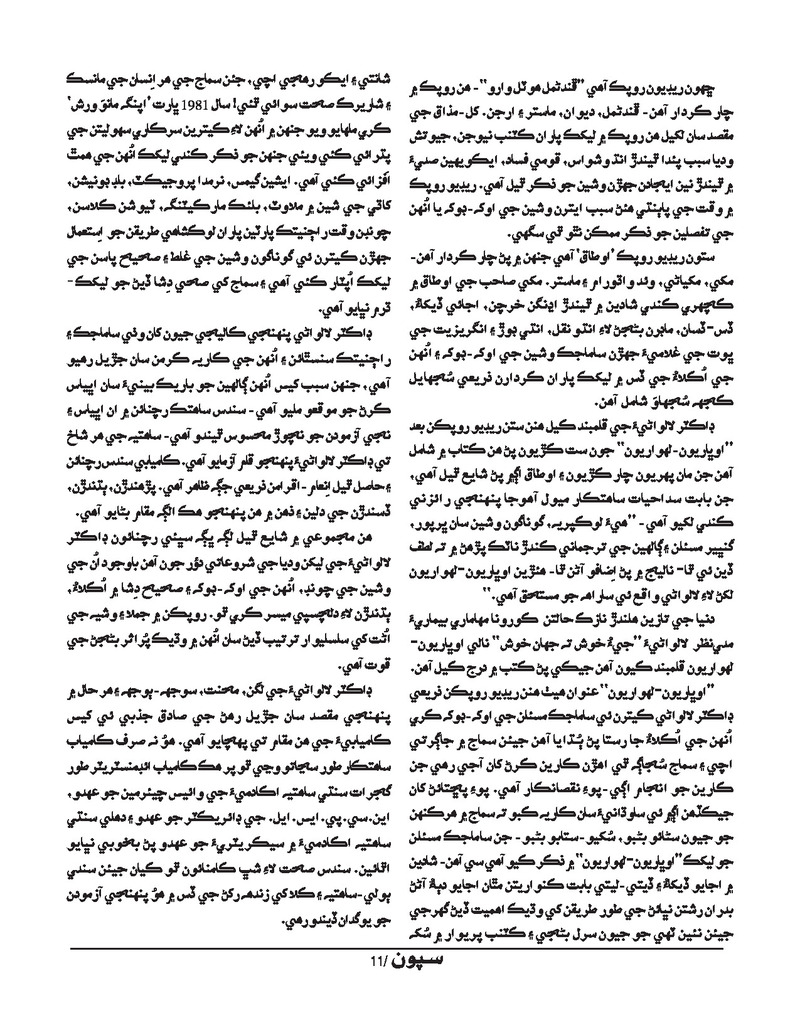 ڇهون ريڊيون روپڪ آهي ”قندڻمل هوٽل وارو“- هن روپڪ ۾
چار ڪردار آهن- قندڻمل، ديوان، ماسٽر ۽ ارجن. کل-مذاق جي
مقصد سان لکيل هن روپڪ ۾ ليکڪ پاران ڪٽنب نيوجن، جيوتش
وديا سبب پئدا ٿيندڙ انڌوشواس، قومي فساد، ايڪويهين صديءَ
۾ ٿيندڙ نين ايجادن جهڙن وشين جو ذڪر ٿيل آهي. ريڊيو روپڪ
۾ وقت جي پابنـدي هئڻ سبب ايترن وشين جي اوک-ڊوک يا اُنهن
جي تفصيلن جو ذڪر ممڪن نٿو ٿي سگهي.
ستون ريڊيو روپڪ ’اوطاق‘ آهي جنهن ۾ پڻ چار ڪردار آهن-
مکي، مکياڻي، وئد واڌورام ۽ ماسٽر. مکي صاحب جي اوطاق ۾
ڪچهري ڪندي شادين ۾ ٿيندڙ اڍنگن خرچن، اجائي ڏيکاءُ،
ڏس-ڏسان، ماڊرن بڻجڻ لاءِ انڌو نقل، انڌي ڊوڙ ۽ انگريزيت جي
ڀوت جي غلاميءَ جهڙن ساماجڪ وشين جي اوک-ڊوک ۽ اُنهن
جي اُڪلاءُ جي ڏس ۾ ليکڪ پاران ڪردارن ذريعي سُجهايل
ڪجهہ سُجهاوَ شامل آهن.
ڊاڪٽر لالواڻيءَ جي قلمبند ڪيل هنن ستن ريڊيو روپڪن بعد
”اوڀاريون-لهواريون“ جون ست ڪڙيون پڻ هن ڪتاب ۾ شامل
آهن جن مان پهريون چار ڪڙيون ۽ اوطاق اڳ ۾ پڻ شايع ٿيل آهي،
جن بابت سداحيات ساهتڪار ميول آهوجا پنهنجي راءِ زني
ڪندي لکيو آهي- ”هيءَ لوڪپريه، گوناگون وشين سان ڀرپور،
گنڀير مسئلن ۽ ڳالهين جي ترجماني ڪندڙ ناٽڪ پڙهڻ ۾ تہ لطف
ڏين ئي ٿا- ناليج ۾ پڻ اِضافو آڻن ٿا- هنڙين اوڀاريون-لهواريون
لکڻ لاءِ لالواڻي واقع ئي ساراهہ جو مستحق آهي.“
دنيا جي تازين هلندڙ نازڪ حالتن ڪورونا مهاماري بيماريءَ
مدنظر لالواڻيءَ ”جيءُ خوش تہ جهان خوش“ نالي اوڀاريون-
لهواريون قلمبند ڪيون آهن جيڪي پڻ ڪتب ۾ درج ڪيل آهن.
”اوڀاريون-لهواريون“ عنوان هيٺ هنن ريڊيو روپڪن ذريعي
ڊاڪٽر لالواڻي ڪيترن ئي ساماجڪ مسئلن جي اوک-ڊوک ڪري
اُنهن جي اُڪلاءُ جا رستا پڻ ٻُڌايا آهن جيئن سماج ۾ جاڳرتي
اچي ۽ سماج سُجاڳ ٿي اهڙن ڪارين ڪرڻ کان آجي رهي جن
ڪارين جو انجام اڳي-پوءِ نقصانڪار آهي. پوءِ پڇتائڻ کان
جيڪڏهن اڳ ۾ ئي ساوڌانيءَ سان ڪاريه ڪبو تہ سماج ۾ هرڪنهن
جو جيون سڻائو بڻبو، سُکيو-ستابو بڻبو- جن ساماجڪ مسئلن
جو ليکڪ ”اوڀاريون-لهواريون“ ۾ ذڪر ڪيو آهي سي آهن- شادين
۾ اجايو ڏيکاءُ ۽ ڏيتي-ليتي بابت ڪنواريتن مٿان اجايو دٻاءُ آڻڻ
بدران رشتن نڀائڻ جي طور طريقن کي وڌيڪ اهميت ڏيڻ گهرجي
جيئن نئين ٺهي جو جيون سرل بڻجي ۽ ڪٽنب پريوار ۾ سُک
شانتي ۽ ايڪو رهجي اچي، جئن سماج جي هر اِنسان جي مانسڪ
۽ شاريرڪ صحت سوائي ٿئي! سال 1981 ڀارت ’اپنگہ مانوَ ورش‘
ڪري ملهايو ويو جنهن ۾ اُنهن لاءِ ڪيترين سرڪاري سهوليتن جي
پڌرائي ڪئي ويئي جنهن جو ذڪر ڪندي ليکڪ اُنهن جي همٿ
افزائي ڪئي آهي. ايشين گيمس، نرمدا پروجيڪٽ، بلڊ ڊونيشن،
کاڌي جي شين ۾ ملاوٽ، بلئڪ مارڪيٽنگہ، ٽيوشن ڪلاسن،
چونڊن وقت راڄنيتڪ پارٽين پاران لوڪشاهي طريقن جو اِستعمال
جهڙن ڪيترن ئي گوناگون وشين جي غلط ۽ صحيح پاسن جي
ليکڪ اُپٽار ڪئي آهي ۽ سماج کي صحي دِشا ڏيڻ جو ليکڪ-
ڌرم نڀايو آهي.
ڊاڪٽر لالواڻي پنهنجي ڪاليجي جيون کان وٺي ساماجڪ ۽
راڄنيتڪ سنسٿائن ۽ اُنهن جي ڪاريه ڪرمن سان جڙيل رهيو
آهي، جنهن سبب کيس اُنهن ڳالهين جو باريڪ بينيءَ سان اڀياس
ڪرڻ جو موقعو مليو آهي- سندس ساهتڪ رچنائن ۾ ان اڀياس ۽
نجي آزمودن جو نچوڙ محسوس ٿيندو آهي- ساهتيه جي هر شاخ
تي ڊاڪٽر لالواڻيءَ پنهنجو قلم آزمايو آهي. ڪاميابي سندس رچنائن
۽ حاصل ٿيل اِنعام-اڪرامن ذريعي جڳ ظاهر آهي. پڙهندڙن، ٻڌندڙن،
ڏسندڙن جي دلين ۽ ذهن ۾ هن پنهنجو هڪ الڳ مقام بڻايو آهي.
هن مجموعي ۾ شايع ٿيل لڳ ڀڳ سڀئي رچنائون ڊاڪٽر
لالواڻيءَ جي ليکن وديا جي شروعاتي دؤر جون آهن باوجود اُن جي
وشين جي چونڊ، اُنهن جي اوک-ڊوک ۽ صحيح دِشا ۾ اُڪلاءُ،
ٻڌندڙن لاءِ دلچسپي ميسر ڪري ٿو. روپڪن ۾ جملا ۽ وشيه جي
اُڻت کي سلسليوار ترتيب ڏيڻ سان اُنهن ۾ وڌيڪ پُراثر بڻجڻ جي
قوت آهي.
ڊاڪٽر لالواڻيءَ جي لگن، محنت، سوجهہ-ٻوجهہ ۽ هر حال ۾
پنهنجي مقصد سان جڙيل رهڻ جي صادق جذبي ئي کيس
ڪاميابيءَ جي هن مقام تي پهچايو آهي. هوُ نہ صرف ڪامياب
ساهتڪار طور سڃاتو وڃي ٿو پر هڪ ڪامياب ائڊمنسٽريٽر طور
گجرات سنڌي ساهتيه اڪادميءَ جي وائيس چيئرمين جو عهدو،
اين.سي.پي.ايس.ايل. جي ڊائريڪٽر جو عهدو ۽ دهلي سنڌي
ساهتيه اڪادميءَ ۾ سيڪريٽريءَ جو عهدو پڻ بخوبي نڀايو
اٿائين. سندس صحت لاءِ شڀ ڪامنائون ٿو ڪيان جيئن سنڌي
ٻولي-ساهتيه ۽ ڪلا کي زندهہ رکڻ جي ڏس ۾ هوُ پنهنجي آزمودن
جو يوگدان ڏيندو رهي.
سپون /11